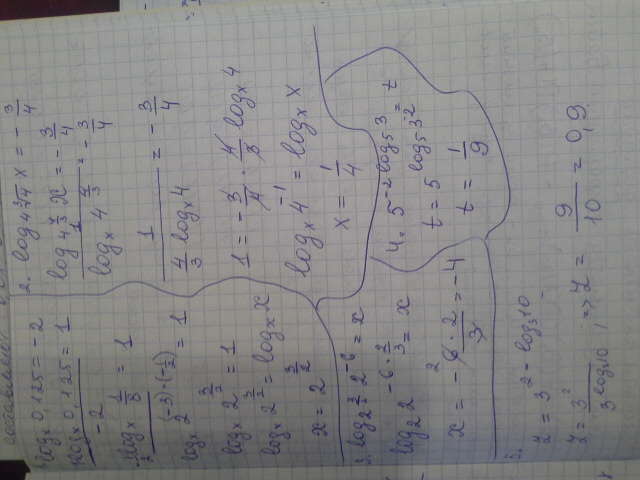 log_x 0,125 = -2
log_x 0,125 / -2 = 1
-1/2 log_x 1/8 = 1
log_x 2^{(-3)·(-1/2)} = 1
log_x 2^{3/2} = 1
log_x 2^{3/2} = log_x x
x = 2^{3/2}
2. log_{4∛4} x = -3/4
log_{4^{4/3}} x = -3/4
1 / log_x 4^{4/3} = -3/4
1 / (4/3 log_x 4) = -3/4
1 = -3/4 · 4/3 log_x 4
log_x 4^{-1} = log_x x
x = 1/4
3. log_{2^{3/2}} 2^{-6} = x
log_2 2^{-6·2/3} = x
x = -6·2/3 = -4
4. 5^{-2log_5 3} = t
t = 5^{log_5 3^{-2}}
t = 1/9
5.
z = 3^{2-log_3 10}
z = 3^2 / 3^{log_3 10} ⇒ z = 9/10 = 0,9